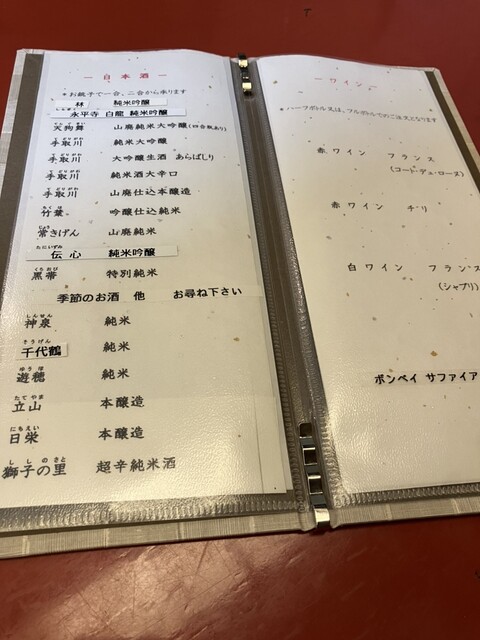 ー 日本酒 ー
＊お銚子で一合、二合から承ります
林 純米吟醸
永平寺 白龍 純米吟醸
天狗舞 山廃純米大吟醸(四合瓶あり)
手取川 純米大吟醸
手取川 大吟醸生酒 あらばしり
手取川 純米酒大辛口
手取川 山廃仕込本醸造
竹葉 吟醸仕込純米
常きげん 山廃純米
伝心 純米吟醸
くろおび
黒帯 特別純米
季節のお酒 他 お尋ね下さい
しんせん
神泉 純米
千代鶴 純米
ゆうほ
遊穂 純米
たてやま
立山 本醸造
にちえい
日栄 本醸造
ししのさと
獅子の里 超辛純米酒
ーワイン。
＊ハーフボトル又は、フルボトルでのご注文となります
赤ワイン フランス
(コート・デュ・ローヌ)
赤ワイン チリ
白ワイン フランス
(シャブリ)
ボンベイ サファイア